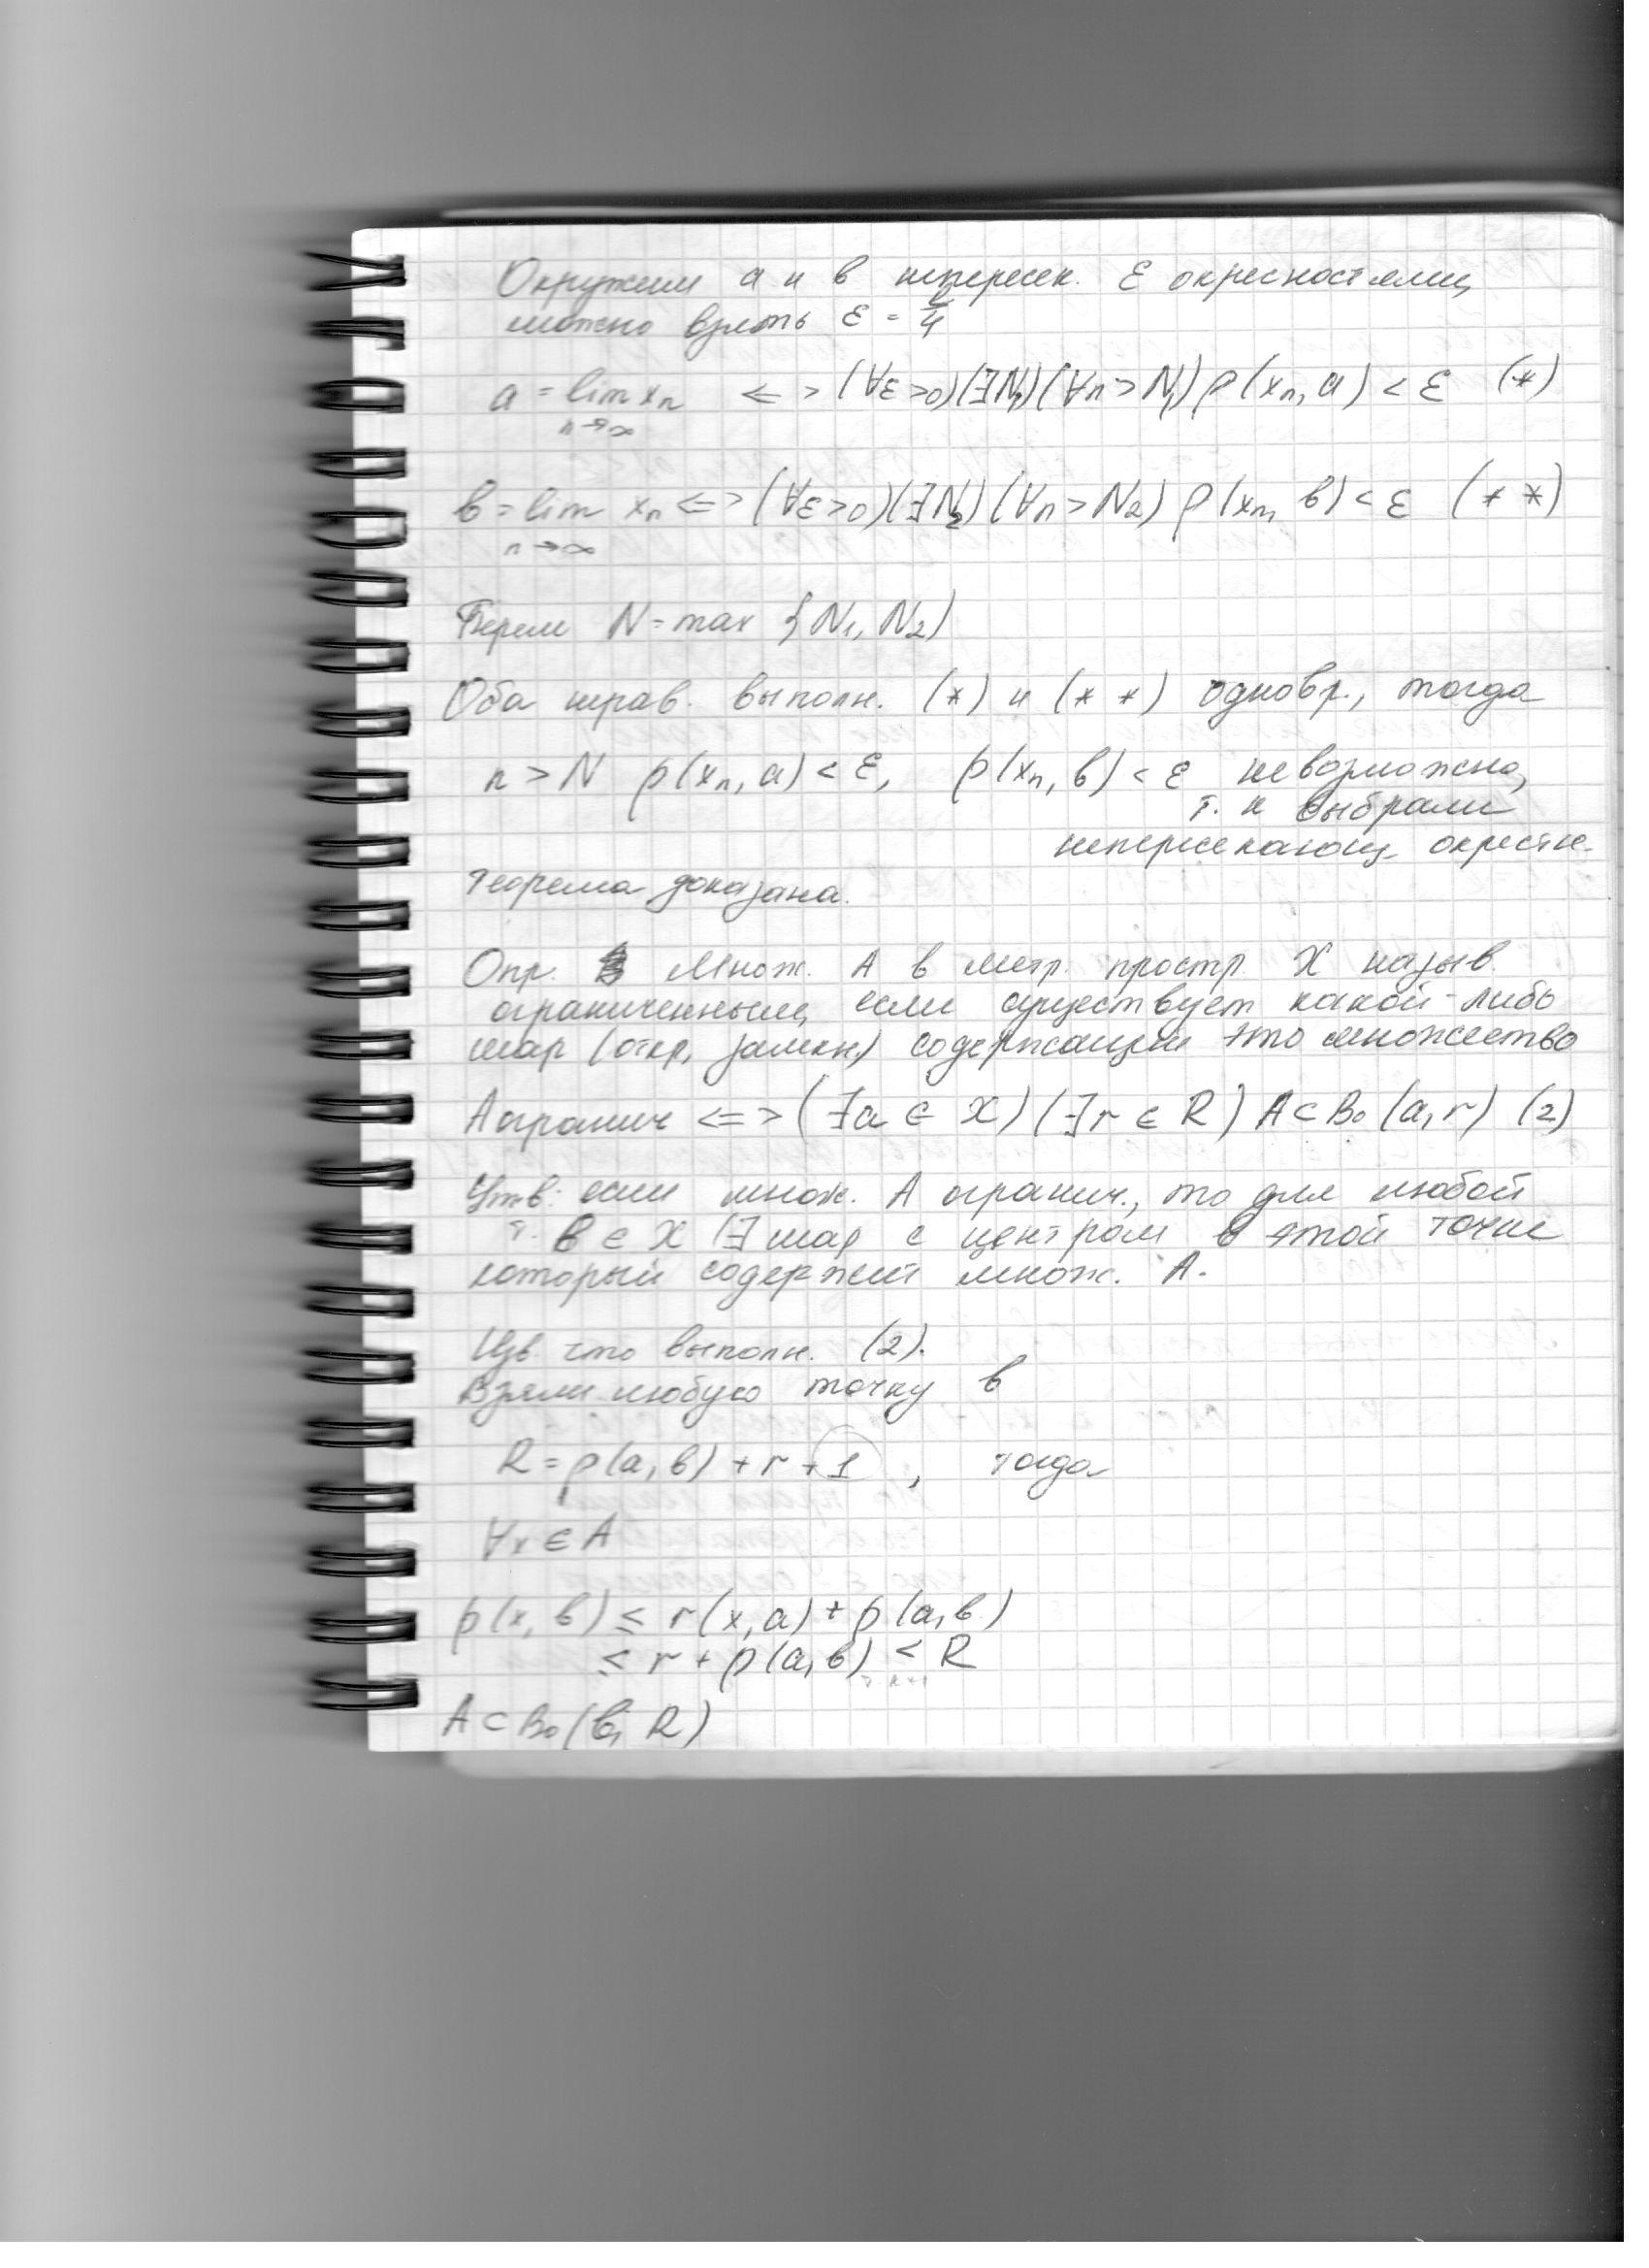 Окружим a и b непересек. ε окресностями,
можно взять ε = r/4
a = lim xₙ <=> (∀ε>0)(∃N₁)(∀n>N₁) ρ(xₙ, a) < ε (*)
n→∞
b = lim xₙ <=> (∀ε>0)(∃N₂)(∀n>N₂) ρ(xₙ, b) < ε (* *)
n→∞
Берем N = max {N₁, N₂)
Оба нерав. выполн. (*) и (* *) одновр., тогда
n > N ρ(xₙ, a) < ε, ρ(xₙ, b) < ε невозможно,
т. к выбрали
непересекающ. окрестн.
теорема доказана.
Опр. Множ. A в метр. простр. X назыв.
ограниченным, если существует какой-либо
шар (откр, замкн.) содержащий это множество
A огранич <=> (∃a ∈ X) (∃r ∈ R) A ⊂ B₀ (a, r) (2)
Утв: если множ. A огранич., то для любой
т. b ∈ X ∃ шар с центром в этой точке
который содержит множ. A.
Изв. что выполн. (2).
Взяли любую точку b
R = ρ(a, b) + r + 1 , тогда
∀x ∈ A
ρ(x, b) ≤ r(x, a) + ρ(a, b)
≤ r + ρ(a, b) < R
A ⊂ B₀ (b, R)